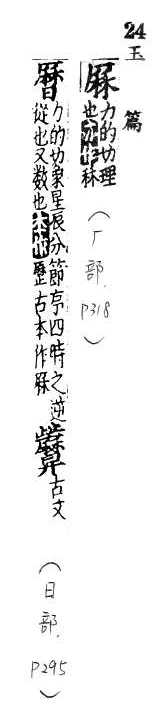 24 玉篇
厤 力的切理也亦作秝 (厂部. P318)
曆 力的切象星辰分節序四時之逆從也又数也本作歷古本作厤 古文 (日部. P295)